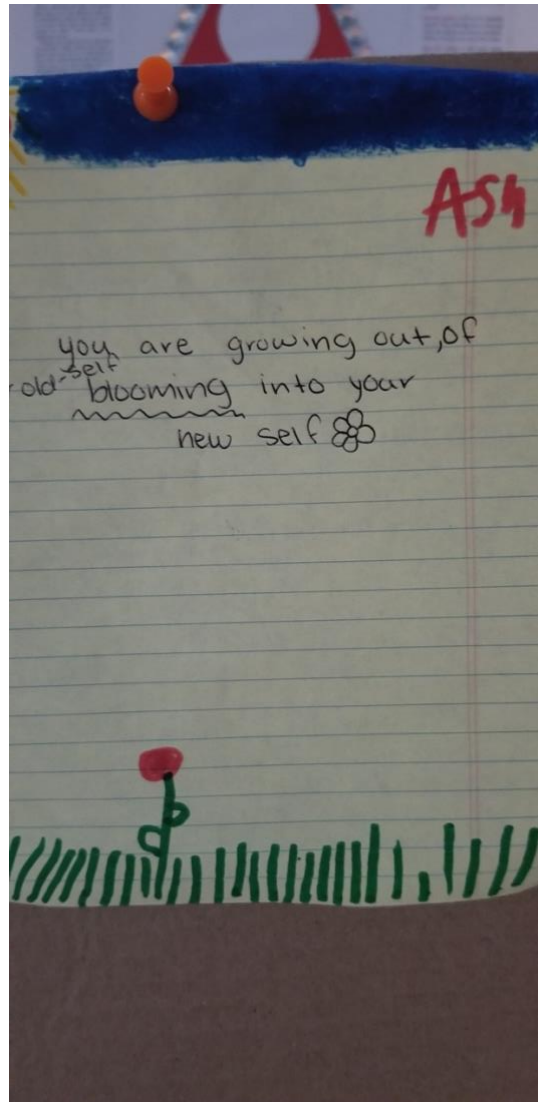 Ash
you are growing out, of
old self
blooming into your
new self